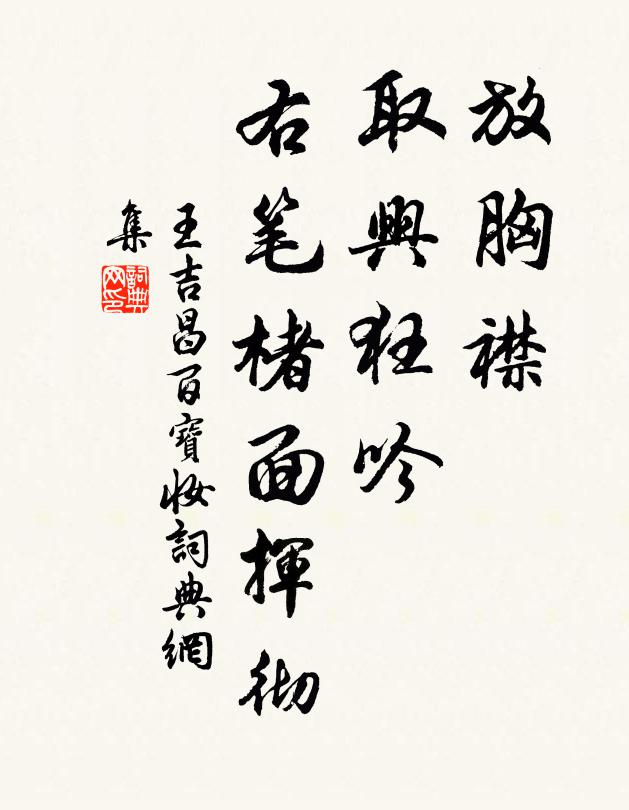 放胸襟
取興狂吟
右笔楮面揮彻
王吉昌百寶妆詞典網
集
詞典网印